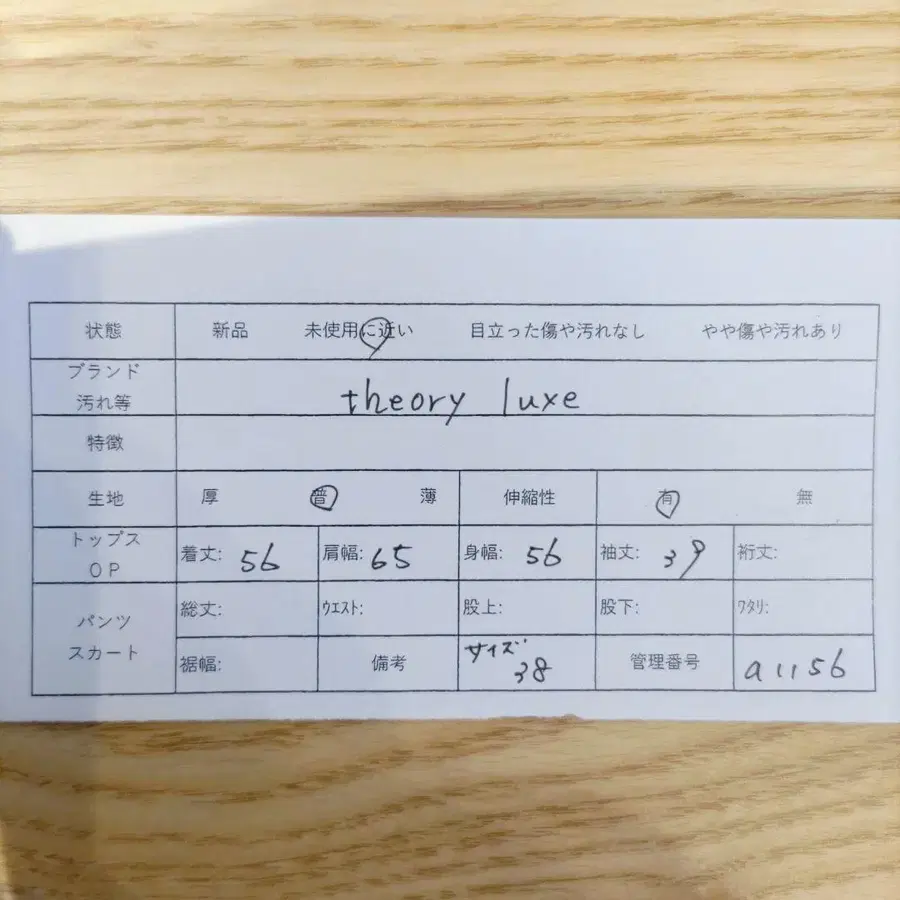 状態 新品 未使用に近い 目立った傷や汚れなし やや傷や汚れあり
ブランド
汚れ等 theory luxe
特徴
生地 厚 普 薄 伸縮性 有 無
トップス
OP 着丈: 56 肩幅: 65 身幅: 56 袖丈: 39 裄丈:
パンツ
スカート
総丈: ウエスト: 股上: 股下: ワタリ:
裾幅: 備考 サイズ 38 管理番号 a1156